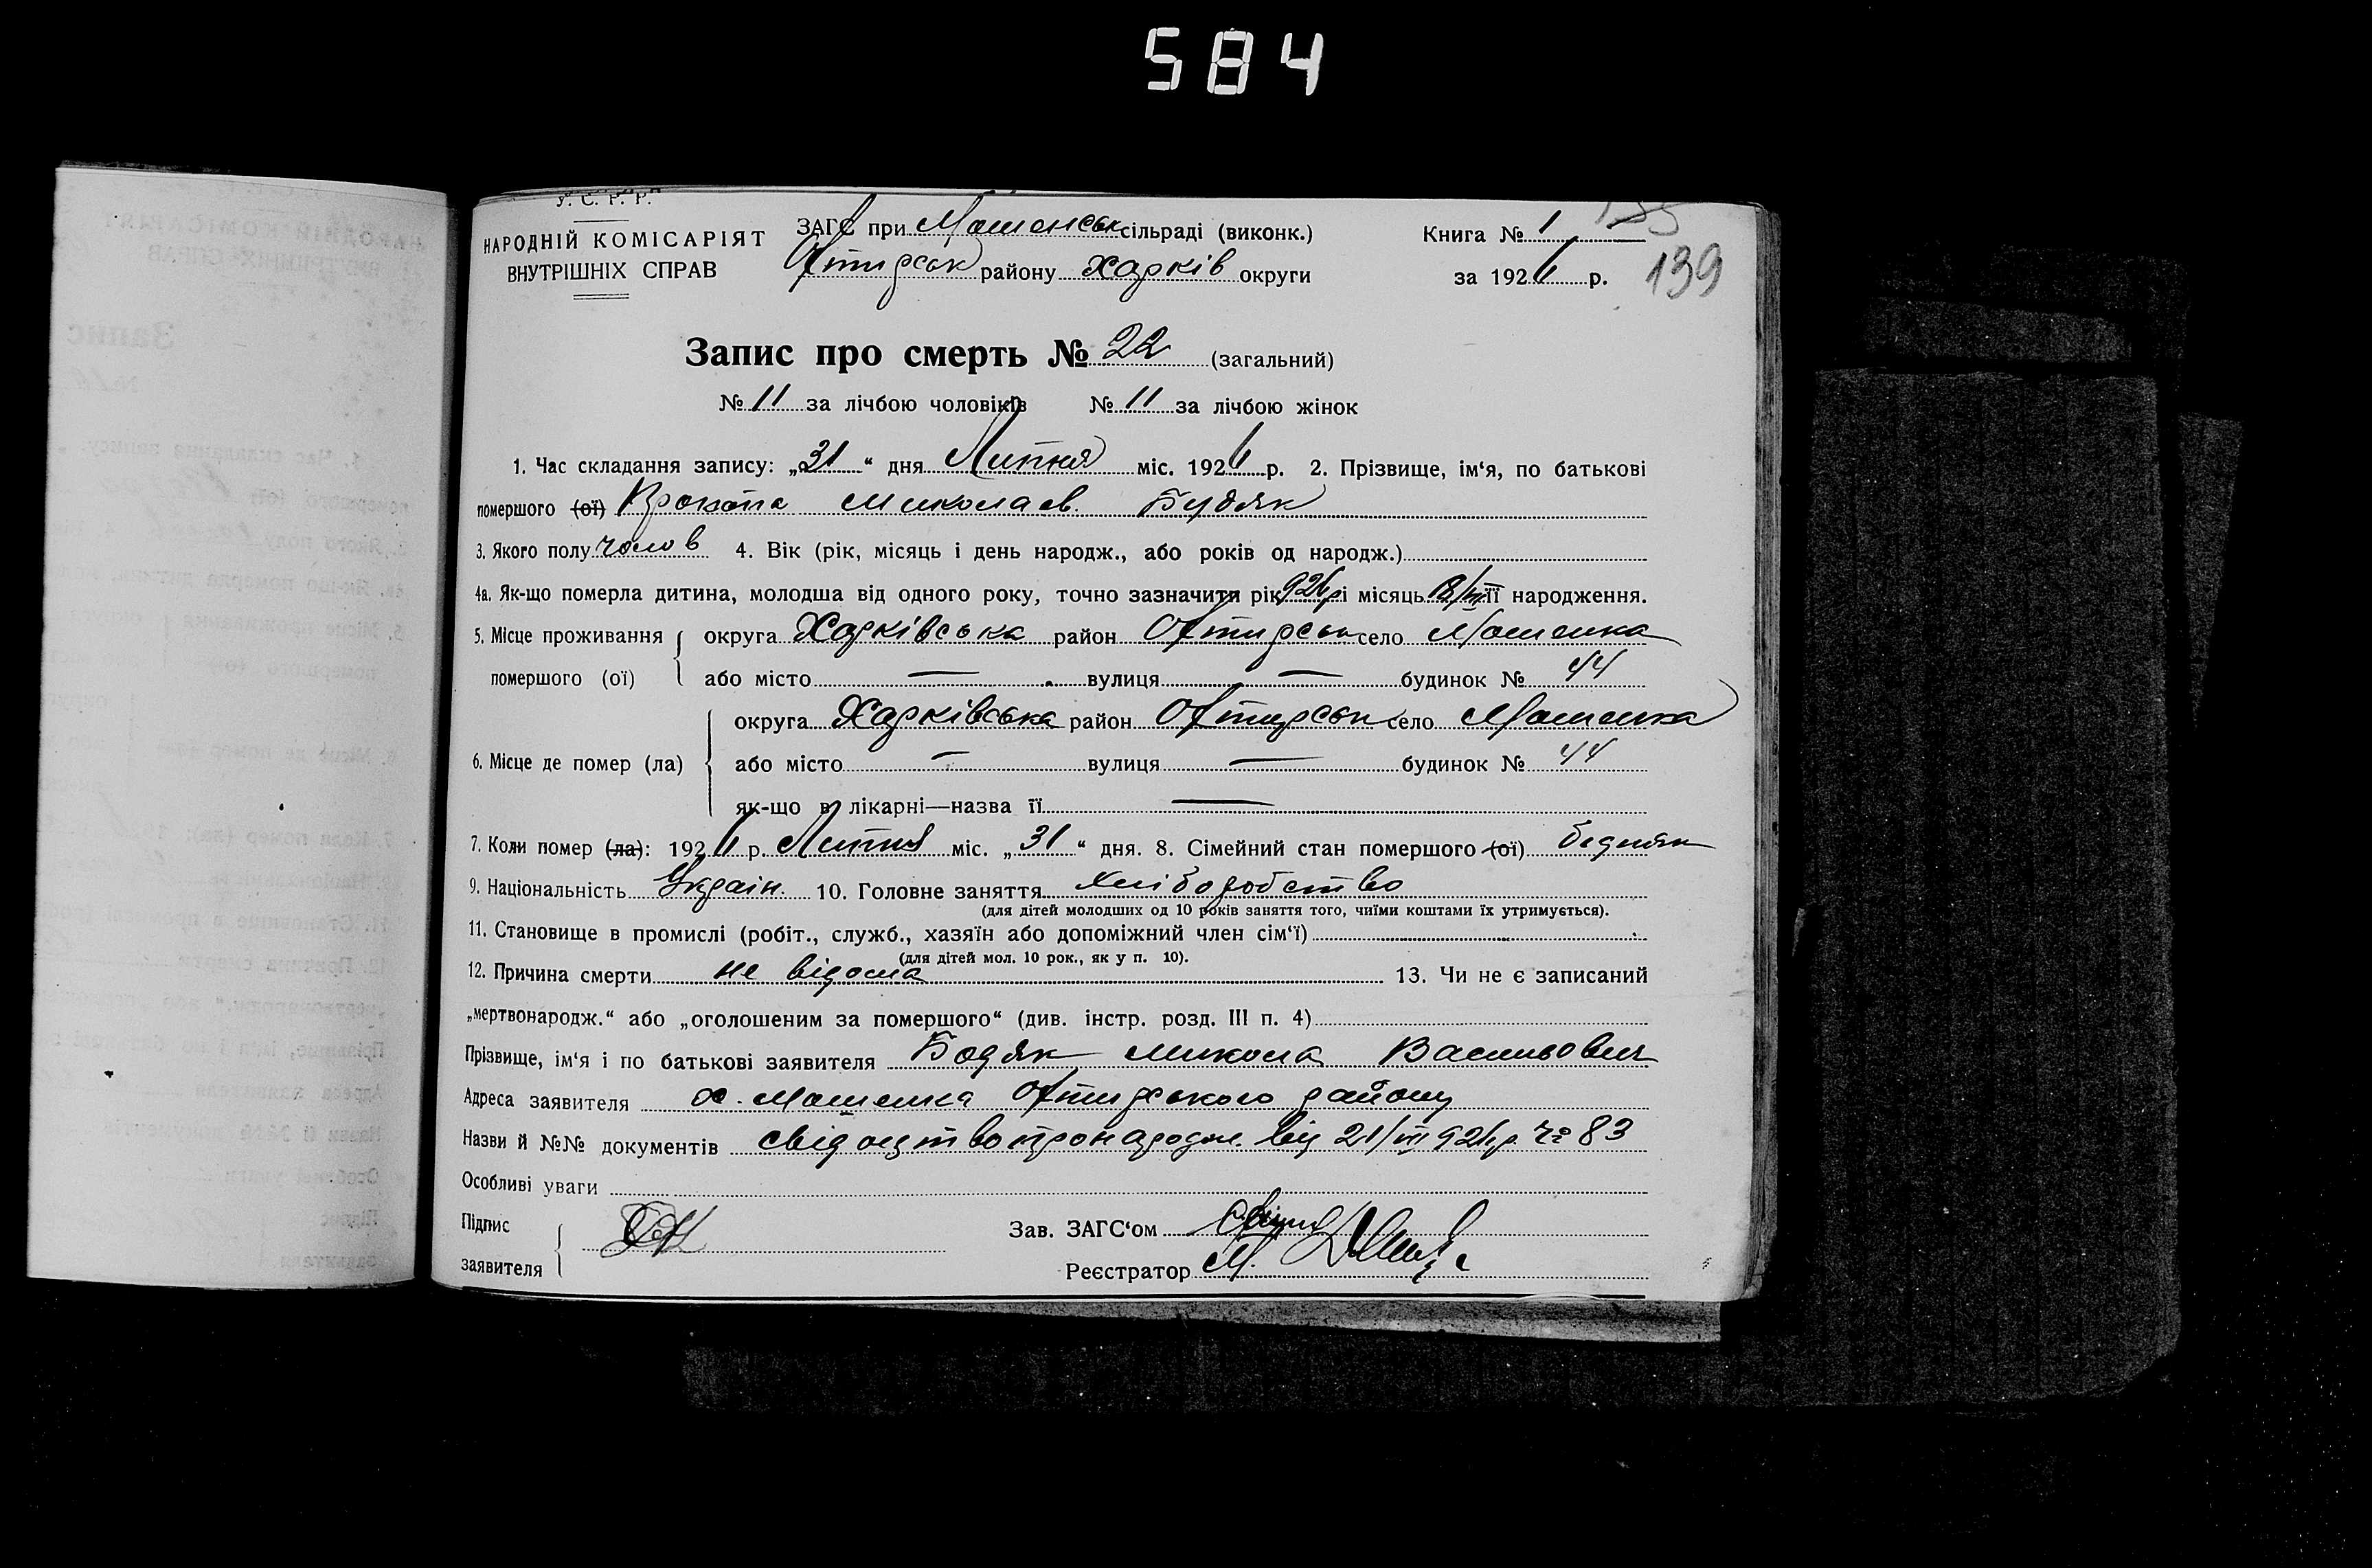 584
У. С. Р. Р.
НАРОДНІЙ КОМІСАРІЯТ
ВНУТРІШНІХ СПРАВ
ЗАГС при Мошенськ сільраді (виконк.)
Охтирськ району Харків округи
Книга № 1
за 1926 р.
139
Запис про смерть № 22 (загальний)
№ 11 за лічбою чоловіків № 11 за лічбою жінок
1. Час складання запису: „31“ дня Липня міс. 1926 р. 2. Прізвище, ім‘я, по батькові
помершого (ої) Прокопа Миколаєв. Будяк
3. Якого полу чолов 4. Вік (рік, місяць і день народж., або років од народж.)
4а. Як-що померла дитина, молодша від одного року, точно зазначити рік 926р і місяць її народження.
5. Місце проживання помершого (ої) округа Харківська район Охтирськ село Мошенка
або місто — вулиця — будинок № 44
6. Місце де помер (ла) округа Харківська район Охтирськ село Мошенка
або місто — вулиця — будинок № 44
як-що в лікарні—назва її —
7. Коли помер (ла): 1926 р. Липня міс. „31“ дня. 8. Сімейний стан помершого (ої) бедняк
9. Національність Україн. 10. Головне заняття Хліборобство
(для дітей молодших од 10 років заняття того, чиїми коштами їх утримується).
11. Становище в промислі (робіт., служб., хазяїн або допоміжний член сім‘ї)
(для дітей мол. 10 рок., як у п. 10).
12. Причина смерти не відома 13. Чи не є записаний
„мертвонародж.“ або „оголошеним за помершого“ (див. інстр. розд. III п. 4)
Прізвище, ім‘я і по батькові заявителя Бодяк Микола Васильович
Адреса заявителя х. Мошенка Охтирського району
Назви й №№ документів свідоцтво про народж. від 21/III 926р. чо 83
Особливі уваги
Підпис
заявителя
Зав. ЗАГС‘ом
Реєстратор М.